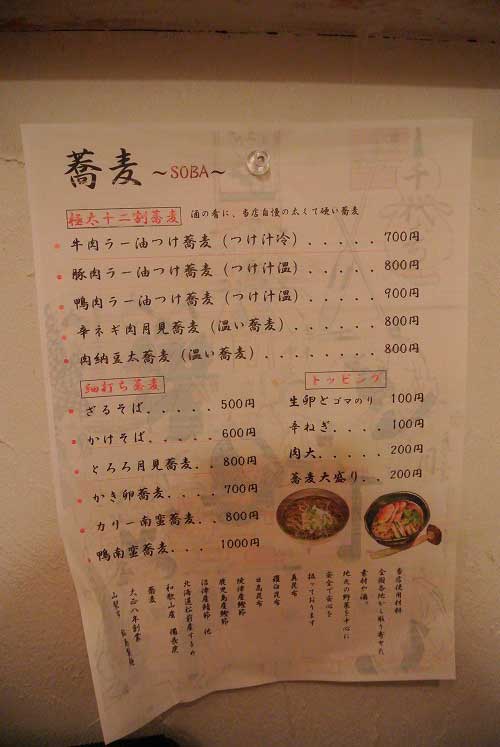 蕎麦 ～SOBA～
極太十二割蕎麦 酒の肴に、当店自慢の太くて硬い蕎麦
牛肉ラー油つけ蕎麦（つけ汁冷）......700円
豚肉ラー油つけ蕎麦（つけ汁温）......800円
鴨肉ラー油つけ蕎麦（つけ汁温）......900円
辛ネギ肉月見蕎麦（温い蕎麦）.......800円
肉納豆太蕎麦（温い蕎麦）........800円
細打ち蕎麦
ざるそば.....500円
かけそば.....600円
とろろ月見蕎麦..800円
かき卵蕎麦....700円
カリー南蛮蕎麦..800円
鴨南蛮蕎麦...1000円
トッピング
生卵とゴマのり 100円
辛ねぎ....100円
肉大.....200円
蕎麦大盛り..200円
当店使用材料
全国各地から取り寄せた
素材や酒。
地元の野菜を中心に
安全で安心を
扱っております
真昆布
羅臼昆布
日高昆布
焼津産鰹節
鹿児島産鰹節
沼津産鯖節 他
北海道松前産するめ
和歌山産 備長炭
蕎麦
大正八年創業